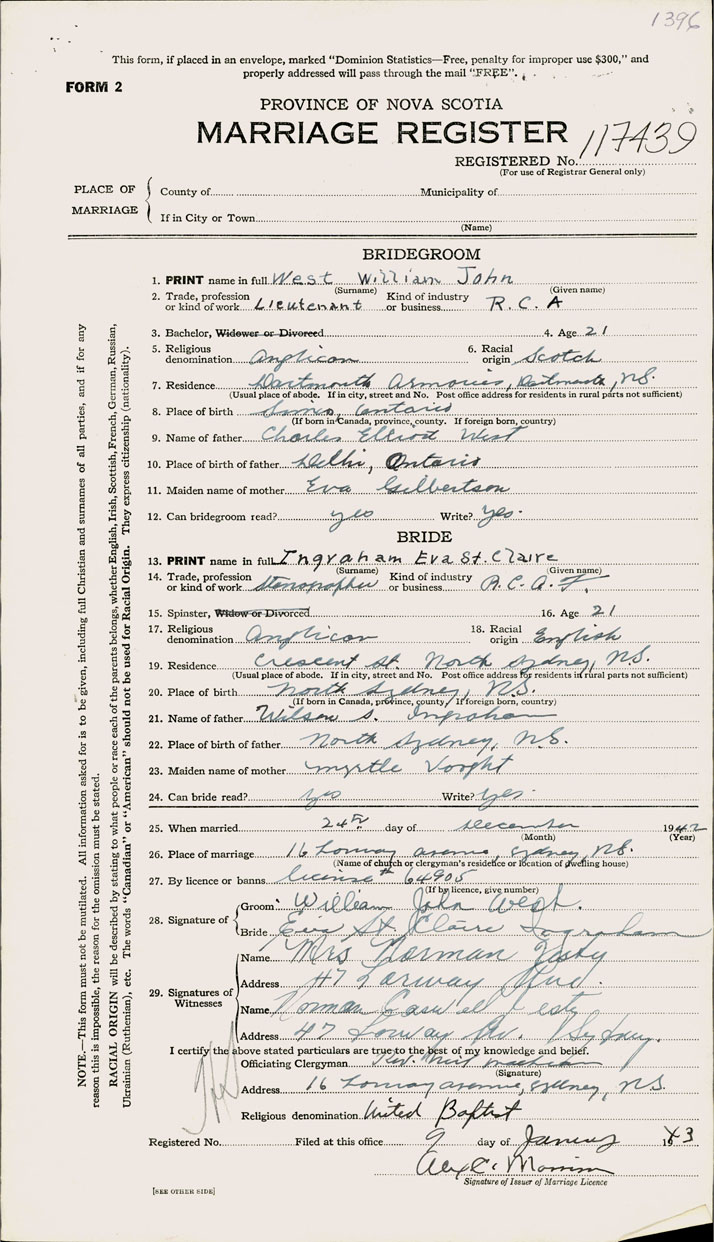 1396
This form, if placed in an envelope, marked "Dominion Statistics—Free, penalty for improper use $300," and
properly addressed will pass through the mail "FREE".
FORM 2
PROVINCE OF NOVA SCOTIA
MARRIAGE REGISTER
117439
REGISTERED No.
(For use of Registrar General only)
PLACE OF MARRIAGE
County of Municipality of
If in City or Town
(Name)
BRIDEGROOM
1. PRINT name in full West William John
(Surname) (Given name)
2. Trade, profession or kind of work Lieutenant Kind of industry or business R.C.A
3. Bachelor, Widower or Divorced 4. Age 21
5. Religious denomination Anglican 6. Racial origin Scotch
7. Residence Dartmouth Armories, Dartmouth, N.S.
(Usual place of abode. If in city, street and No. Post office address for residents in rural parts not sufficient)
8. Place of birth Ontario
(If born in Canada, province, county. If foreign born, country)
9. Name of father Charles Elliott West
10. Place of birth of father Delhi, Ontario
11. Maiden name of mother Eva Gilbertson
12. Can bridegroom read? yes Write? Yes.
BRIDE
13. PRINT name in full Ingraham Eva St. Claire
(Surname) (Given name)
14. Trade, profession or kind of work Stenographer Kind of industry or business R.C.A.F.
15. Spinster, Widow or Divorced 16. Age 21
17. Religious denomination Anglican 18. Racial origin English
19. Residence Crescent St. North Sydney, N.S.
(Usual place of abode. If in city, street and No. Post office address for residents in rural parts not sufficient)
20. Place of birth North Sydney, N.S.
(If born in Canada, province, county. If foreign born, country)
21. Name of father Wilson S. Ingraham
22. Place of birth of father North Sydney, N.S.
23. Maiden name of mother Myrtle Vooght
24. Can bride read? yes Write? yes.
25. When married 24th day of December 1942
(Month) (Year)
26. Place of marriage 16 avenue, Sydney, N.S.
(Name of church or clergyman's residence or location of dwelling house)
27. By licence or banns license # 64905
(If by licence, give number)
28. Signature of
Groom William John West.
Bride Eva St. Claire Ingraham
29. Signatures of Witnesses
Name Mrs Norman
Address 47 Ave.
Name Norman
Address 47 Av. Sydney.
I certify the above stated particulars are true to the best of my knowledge and belief.
Officiating Clergyman Rev.
(Signature)
Address 16 avenue, Sydney, N.S.
Religious denomination United Baptist
Registered No. Filed at this office 9 day of January 1943
Signature of Issuer of Marriage Licence
[SEE OTHER SIDE]
NOTE.—This form must not be mutilated. All information asked for is to be given, including full Christian and surnames of all parties, and if for any
reason this is impossible, the reason for the omission must be stated.
RACIAL ORIGIN will be described by stating to what people or race each of the parents belongs, whether English, Irish, Scottish, French, German, Russian,
Ukrainian (Ruthenian), etc. The words "Canadian" or "American" should not be used for Racial Origin. They express citizenship (nationality).